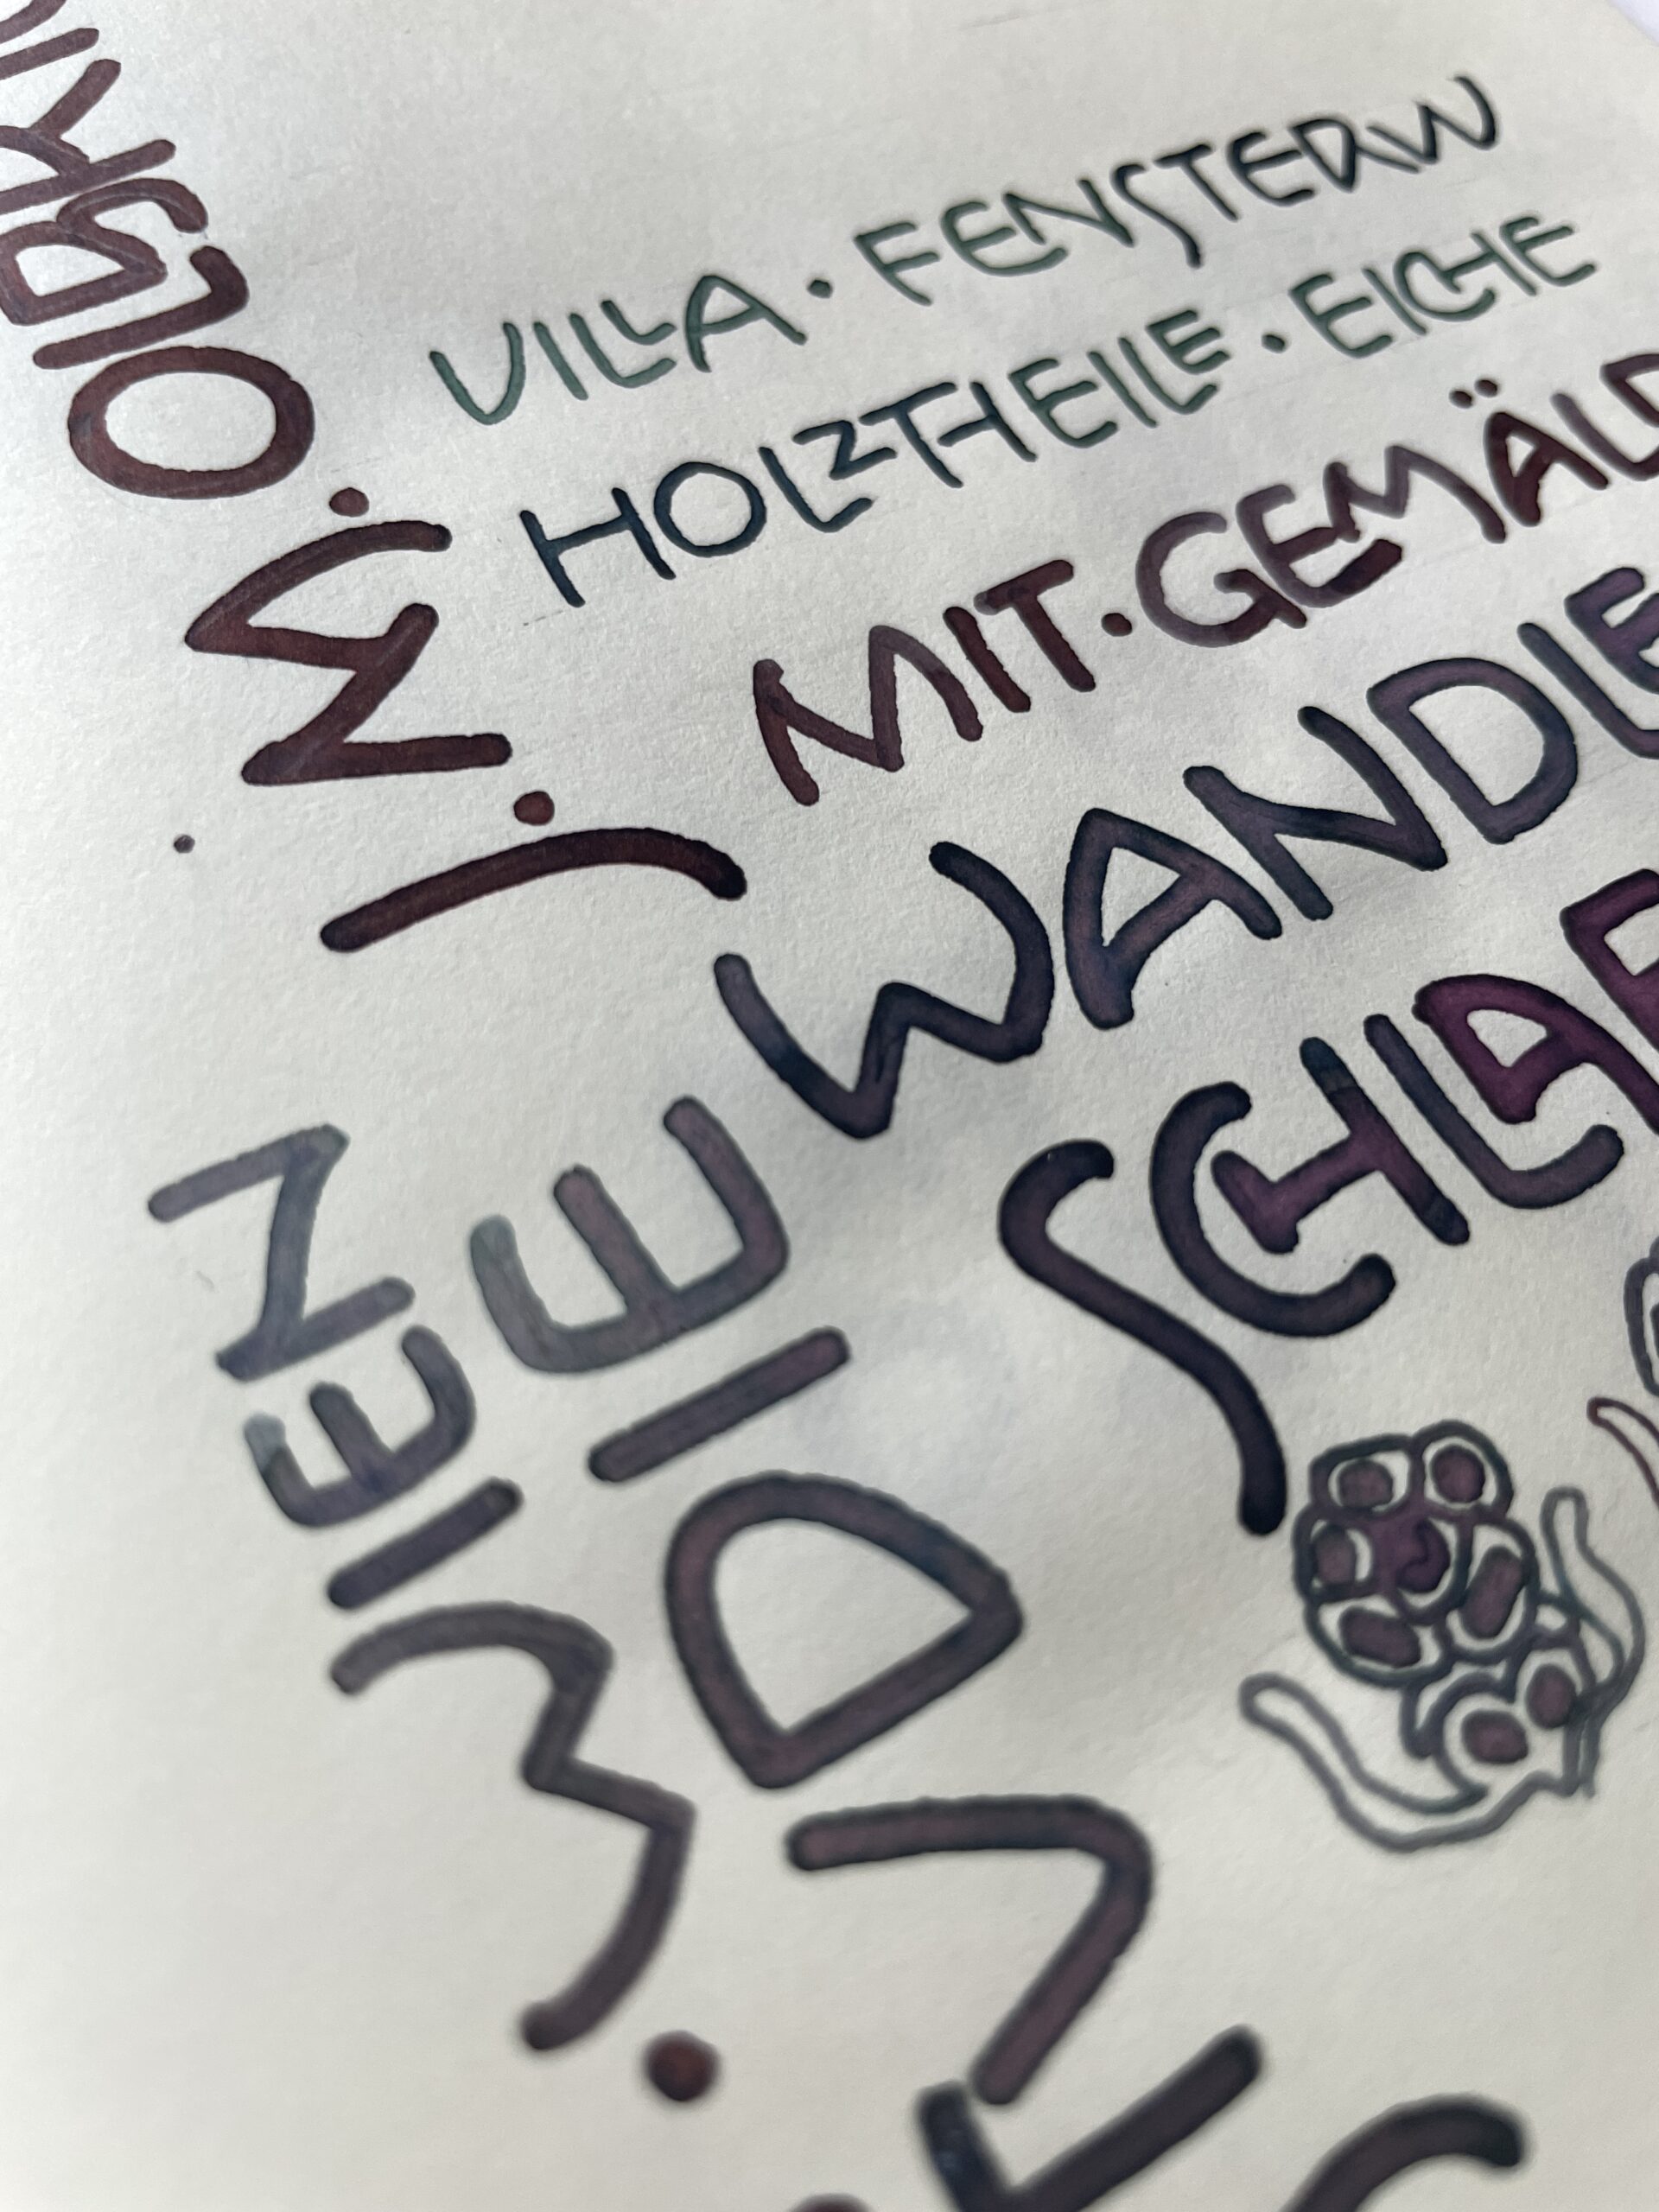 J·M·OLBRI
VILLA · FENSTERW
HOLZTHEILE · EICHE
MIT · GEMÄLD
WANDLE
SCHLAF
· WIEN
DIE